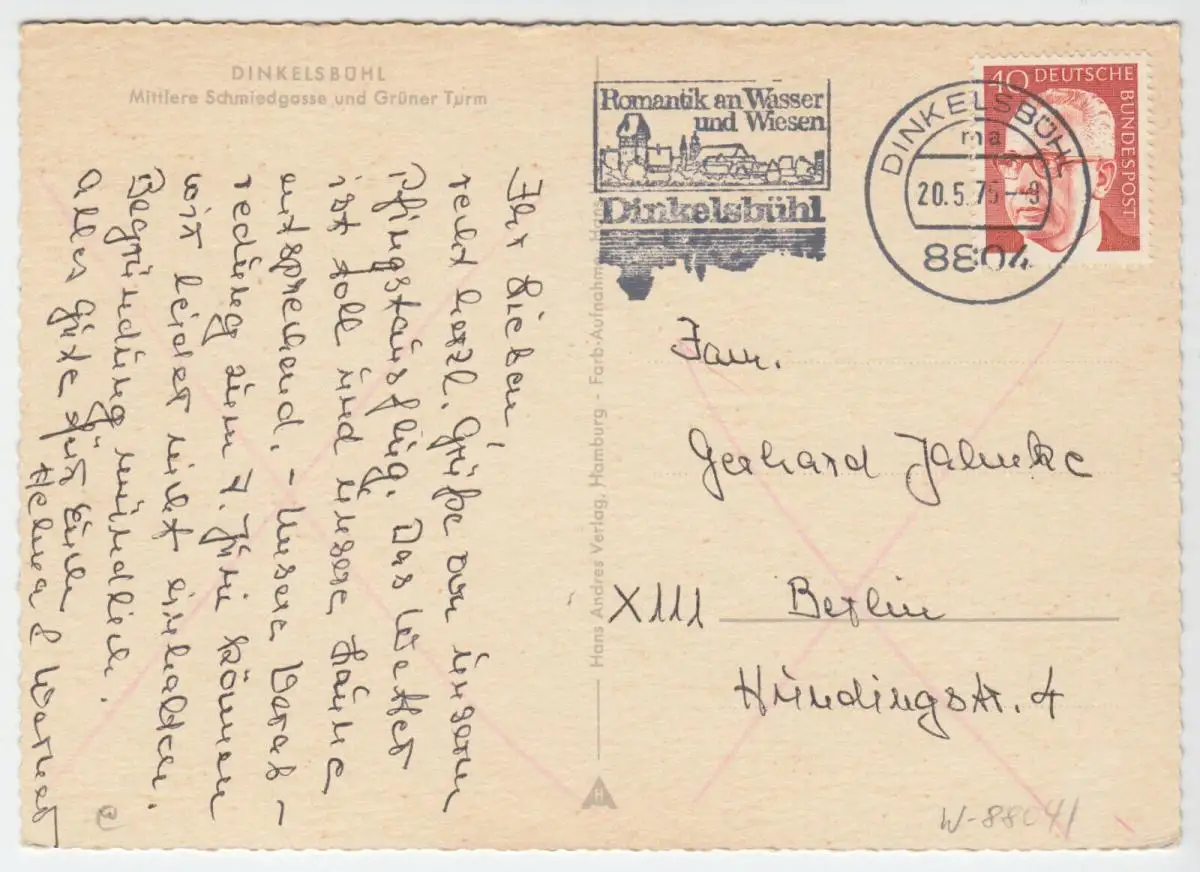 DINKELSBÜHL
Mittlere Schmiedgasse und Grüner Turm
Ihr Lieben,
seid herzl. Grüße von unserm
Pfingstausflug. Das Wetter
ist toll und unsere Laune
entsprechend. - Unsere Verab-
redung zum 7. Juni können
wir leider nicht einhalten.
Begründung mündlich.
Alles Gute für Euch
Helma & Werner
Hans Andres Verlag, Hamburg - Farb-Aufnahme
H
Romantik an Wasser
und Wiesen
Dinkelsbühl
DINKELSBÜHL
ma
20.5.75-9
8804
40 DEUTSCHE
BUNDESPOST
Fam.
Gerhard Jahnke
XIII Berlin
Hündingstr. 4
W-8804/
e